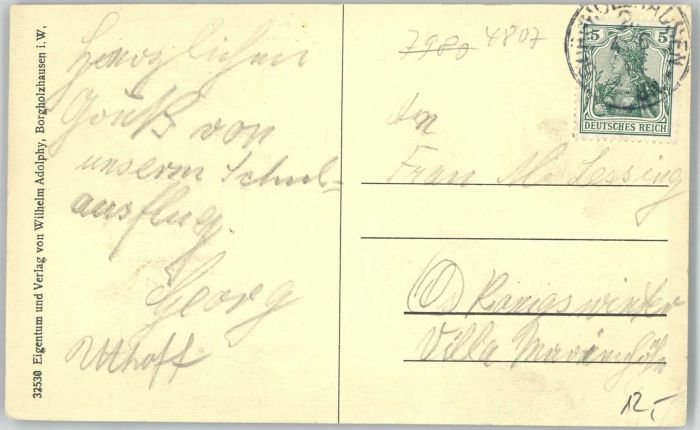 Herzlichen
Gruß von
unserm Schul-
ausflug.
Georg
Uthoff
32530 Eigentum und Verlag von Wilhelm Adolphy, Borgholzhausen i. W.
7980 4807
5 5
DEUTSCHES REICH
An
Frau M. Lessing
Königswinter
Villa
12,-